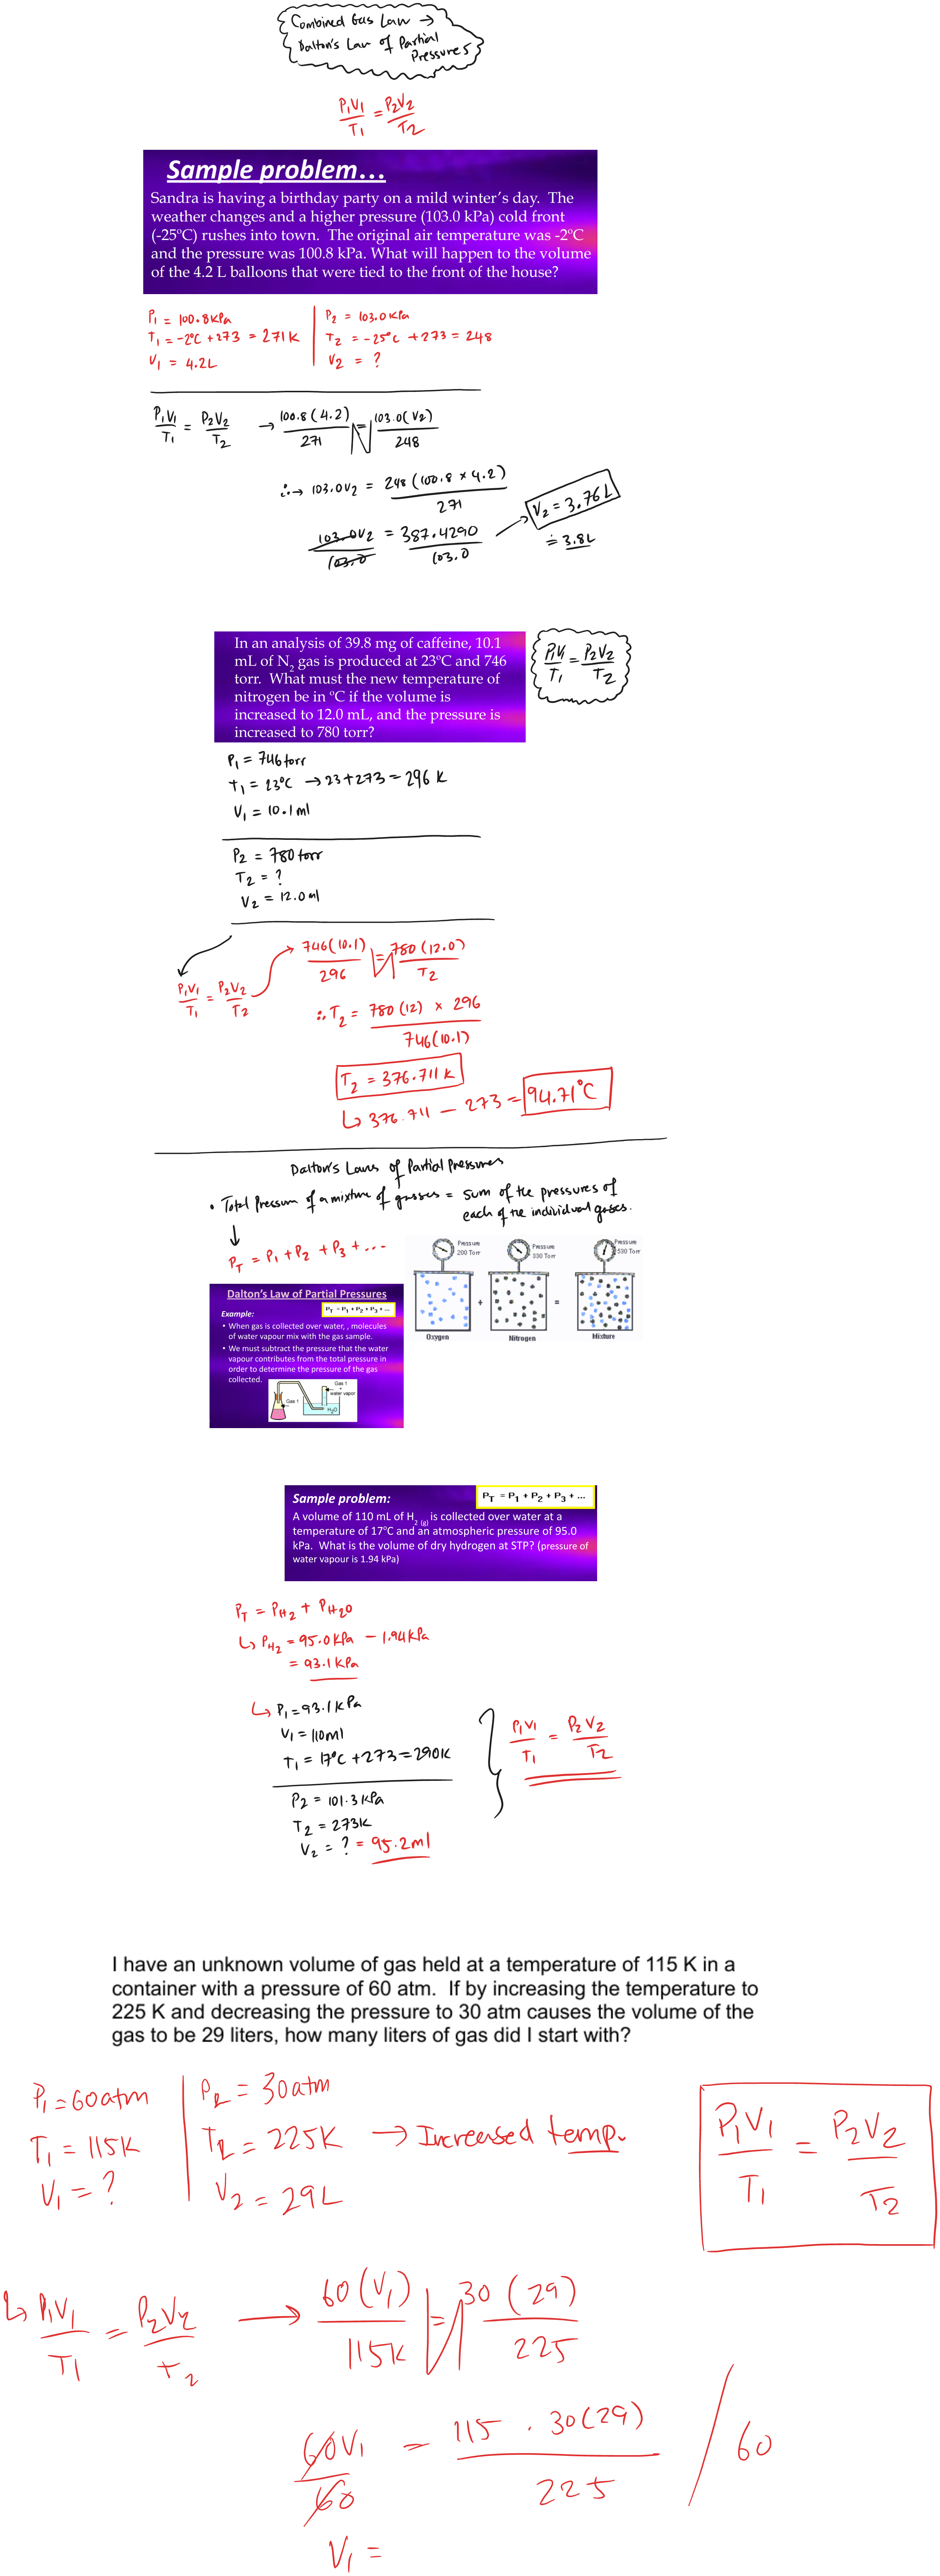 Combined Gas Law →
Dalton's Law of Partial
Pressures
P₁V₁/T₁ = P₂V₂/T2
Sample problem...
Sandra is having a birthday party on a mild winter's day. The
weather changes and a higher pressure (103.0 kPa) cold front
(-25°C) rushes into town. The original air temperature was -2°C
and the pressure was 100.8 kPa. What will happen to the volume
of the 4.2 L balloons that were tied to the front of the house?
P₁ = 100.8 kPa
T₁ = -2°C + 273 = 271 K
V₁ = 4.2L
P₂ = 103.0 kPa
T₂ = -25°C + 273 = 248
V₂ = ?
P₁V₁/T₁ = P₂V₂/T₂ → 100.8(4.2)/271 = 103.0(V₂)/248
∴→ 103.0V₂ = 248(100.8 × 4.2)/271
103.0V₂/103.0 = 387.4290/103.0
V₂ = 3.76L
≐ 3.8L
In an analysis of 39.8 mg of caffeine, 10.1
mL of N₂ gas is produced at 23°C and 746
torr. What must the new temperature of
nitrogen be in °C if the volume is
increased to 12.0 mL, and the pressure is
increased to 780 torr?
P₁V₁/T₁ = P₂V₂/T2
P₁ = 746 torr
T₁ = 23°C → 23+273 = 296 K
V₁ = 10.1 ml
P₂ = 780 torr
T₂ = ?
V₂ = 12.0 ml
P₁V₁/T₁ = P₂V₂/T2
746(10.1)/296 = 780(12.0)/T₂
∴ T₂ = 780(12) × 296/746(10.1)
T₂ = 376.711 K
↳ 376.711 - 273 = 94.71°C
Dalton's Laws of Partial Pressures
• Total Pressure of a mixture of gasses = sum of the pressures of
each of the individual gases.
↓
P_T = P₁ + P₂ + P₃ + ...
Pressure
200 Torr
Pressure
330 Torr
Pressure
530 Torr
+
=
Oxygen
Nitrogen
Mixture
Dalton's Law of Partial Pressures
Example:
P_T = P₁ + P₂ + P₃ + ...
• When gas is collected over water, , molecules
of water vapour mix with the gas sample.
• We must subtract the pressure that the water
vapour contributes from the total pressure in
order to determine the pressure of the gas
collected.
Gas 1
Gas 1
+
water vapor
H₂O
Sample problem:
P_T = P₁ + P₂ + P₃ + ...
A volume of 110 mL of H₂ (g) is collected over water at a
temperature of 17°C and an atmospheric pressure of 95.0
kPa. What is the volume of dry hydrogen at STP? (pressure of
water vapour is 1.94 kPa)
P_T = P_H₂ + P_H₂O
↳ P_H₂ = 95.0 kPa - 1.94 kPa
= 93.1 kPa
↳ P₁ = 93.1 kPa
V₁ = 110 ml
T₁ = 17°C + 273 = 290K
P₁V₁/T₁ = P₂V₂/T₂
P₂ = 101.3 kPa
T₂ = 273K
V₂ = ? = 95.2 ml
I have an unknown volume of gas held at a temperature of 115 K in a
container with a pressure of 60 atm. If by increasing the temperature to
225 K and decreasing the pressure to 30 atm causes the volume of the
gas to be 29 liters, how many liters of gas did I start with?
P₁ = 60atm
T₁ = 115K
V₁ = ?
P₂ = 30atm
T₂ = 225K → Increased temp.
V₂ = 29L
P₁V₁/T₁ = P₂V₂/T₂
↳ P₁V₁/T₁ = P₂V₂/T₂ → 60(V₁)/115K = 30(29)/225
60V₁/60 = 115 · 30(29)/225 / 60
V₁ =